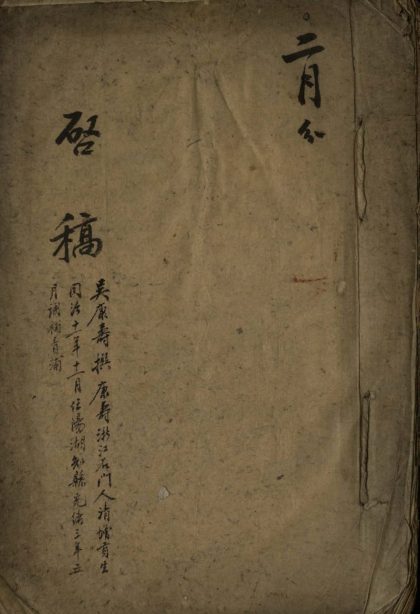 二月分
啓稿
吳康壽撰康壽浙江石門人清增貢生
同治十一年十一月任陽湖知縣光緒三年五
月調補青浦